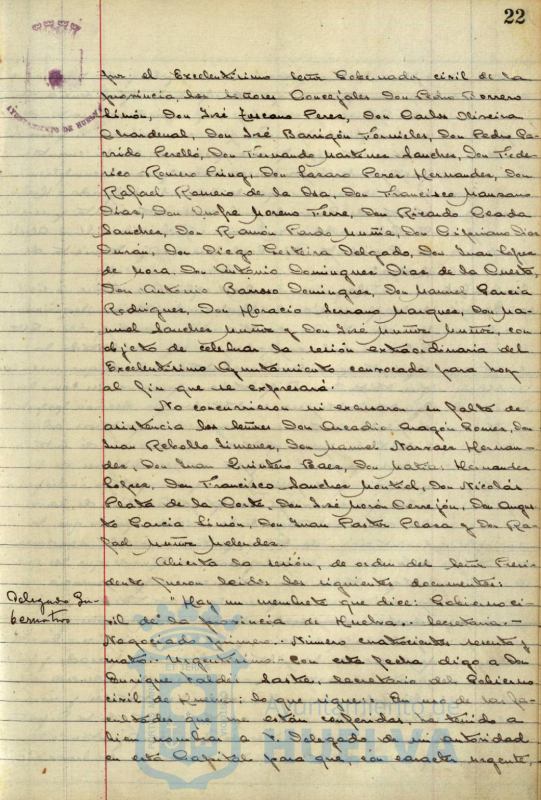 22
por el Excelentísimo Señor Gobernador civil de la
provincia, los Señores Concejales Don Pedro Borrero
Limón, Don José Toscano Perez, Don Carlos Oliveira
Chardenal, Don José Barrigón Fornieles, Don Pedro Ga-
rrido Perelló, Don Fernando Martinez Sanchez, Don Fede-
rico Romero, Don Lazaro Perez Hernandez, Don
Rafael Romero de la Osa, Don Francisco Manzano
Dias, Don Onofre Moreno Ferre, Don Ricardo Ceada
Sanchez, Don Ramón Pardo Muñiz, Don Cipriano Dias
Durán, Don Diego Delgado, Don Juan Lopez
de Mora, Don Antonio Dominguez Dias de la Cuesta,
Don Antonio Barroso Dominguez, Don Manuel Garcia
Rodriguez, Don Horacio Serrano Marquez, Don Ma-
nuel Sanchez Muñoz y Don José Muñoz Muñoz, con
objeto de celebrar la sesión extraordinaria del
Excelentísimo Ayuntamiento convocada para hoy
al fin que se expresará.
No concurrieron ni excusaron su falta de
asistencia los Señores Don Arcadio Aragón Gomez, Don
Juan Rebollo Jimenez, Don Manuel Narvaez Hernan-
dez, Don Juan Quintero Baez, Don Matias Hernandez
Lopez, Don Francisco Sanchez Montiel, Don Nicolás
Plata de la Corte, Don José Morón Cerrejón, Don Augus-
to Garcia Limón, Don Juan Pastor Plaza y Don Ra-
fael Muñoz Melendez.
Abierta la sesión, de orden del Señor Presi-
dente fueron leidos los siguientes documentos:
Delegado Gu-
bernativo
"Hay un membrete que dice: Gobierno ci-
vil de la provincia de Huelva.- Secretaria.-
Negociado primero.- Número cuatrocientos sesenta y
cuatro.- Urgentisimo.- Con esta fecha digo a Don
Enrique Sastre, Secretario del Gobierno
civil de Huelva, lo que sigue: En uso de las fa-
cultades que me están conferidas, he tenido a
bien nombrar a V. Delegado de mi autoridad
en esta Capital para que, con caracter urgente,
AYUNTAMIENTO DE HUELVA
Ayuntamiento de
HUELVA